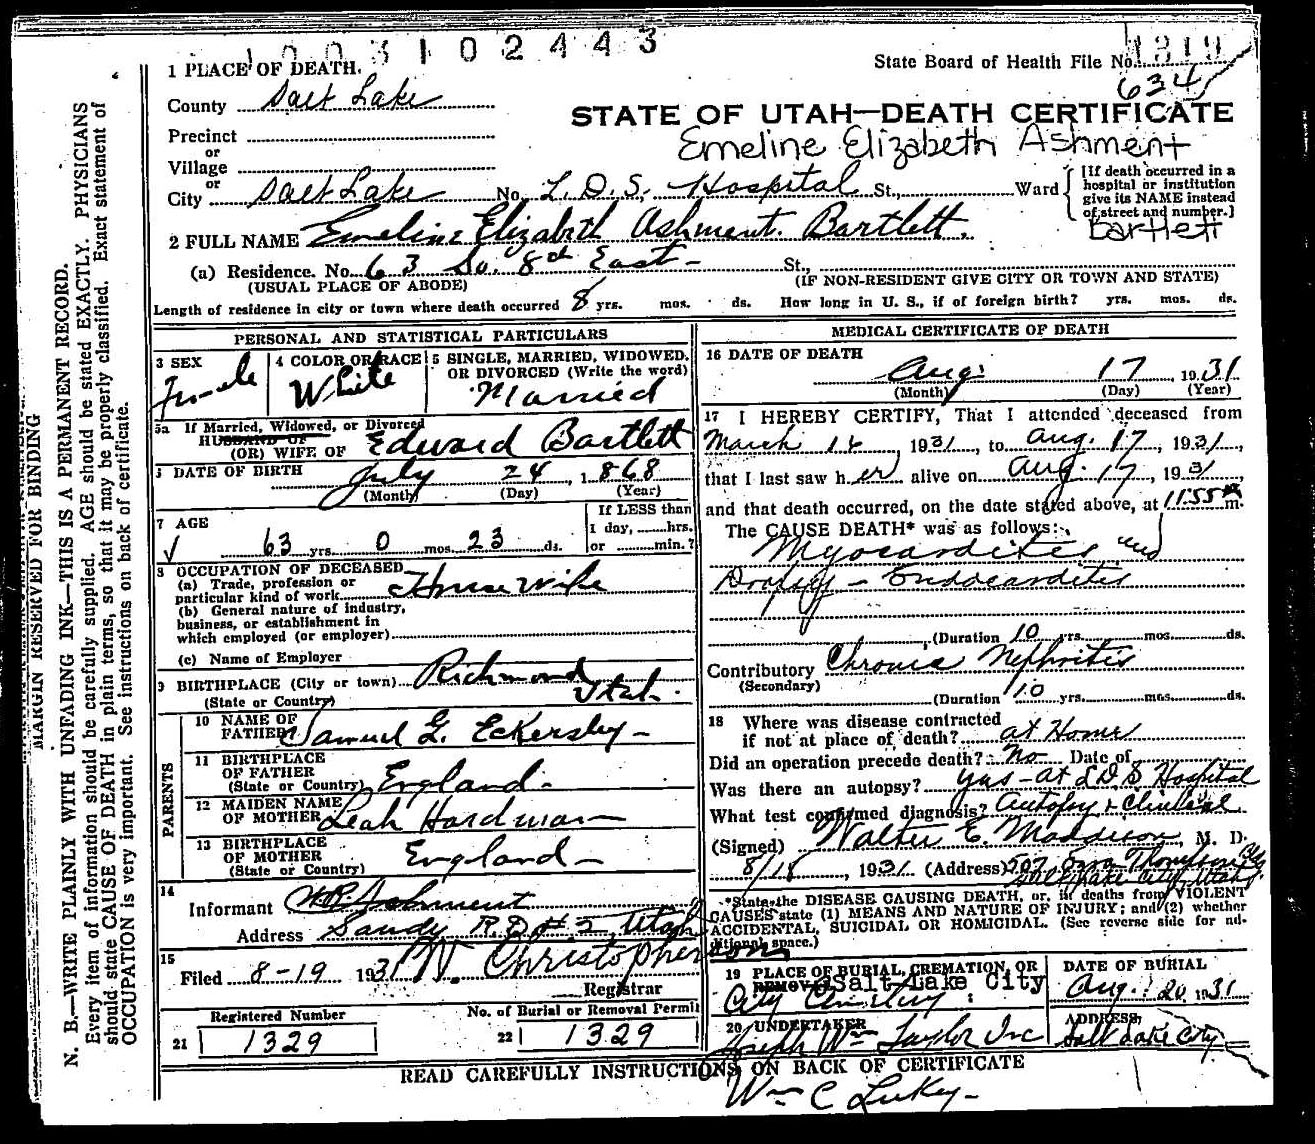 1003102443
1 PLACE OF DEATH.
State Board of Health File No.
634
County Salt Lake
STATE OF UTAH—DEATH CERTIFICATE
Precinct
Emeline Elizabeth Ashment
or
Village
or
City Salt Lake No. L.D.S. Hospital St., Ward
[If death occurred in a
hospital or institution
give its NAME instead
of street and number.]
2 FULL NAME Emeline Elizabeth Ashment Bartlett.
Bartlett
(a) Residence. No. 63 So. 8th East St.,
(USUAL PLACE OF ABODE) (IF NON-RESIDENT GIVE CITY OR TOWN AND STATE)
Length of residence in city or town where death occurred 8 yrs. mos. ds. How long in U. S., if of foreign birth? yrs. mos. ds.
PERSONAL AND STATISTICAL PARTICULARS
3 SEX 4 COLOR OR RACE 5 SINGLE, MARRIED, WIDOWED,
OR DIVORCED (Write the word)
Female White Married
5a If Married, Widowed, or Divorced
HUSBAND OF
(OR) WIFE OF Edward Bartlett
DATE OF BIRTH July 24, 1868
(Month) (Day) (Year)
7 AGE
If LESS than
1 day, hrs.
or min.?
63 yrs. 0 mos. 23 ds.
8 OCCUPATION OF DECEASED
(a) Trade, profession or
particular kind of work Housewife
(b) General nature of industry,
business, or establishment in
which employed (or employer)
(c) Name of Employer
9 BIRTHPLACE (City or town) Richmond
(State or Country) Utah.
PARENTS
10 NAME OF
FATHER Samuel G. Eckersley
11 BIRTHPLACE
OF FATHER
(State or Country) England
12 MAIDEN NAME
OF MOTHER Leah Hardman
13 BIRTHPLACE
OF MOTHER
(State or Country) England
14
Informant Ashment
Address Sandy R.D. #2, Utah
15
Filed 8-19 1931 W. Christopherson
Registrar
Registered Number No. of Burial or Removal Permit
21 1329 22 1329
MEDICAL CERTIFICATE OF DEATH
16 DATE OF DEATH
Aug. 17, 1931
(Month) (Day) (Year)
17 I HEREBY CERTIFY, That I attended deceased from
March 16, 1931, to Aug. 17, 1931,
that I last saw her alive on Aug. 17, 1931,
and that death occurred, on the date stated above, at 11:55 m.
The CAUSE DEATH* was as follows:
Myocarditis and
Dropsy - Endocarditis
(Duration 10 yrs. mos. ds.
Contributory Chronic Nephritis
(Secondary)
(Duration 10 yrs. mos. ds.
18 Where was disease contracted
if not at place of death? at Home
Did an operation precede death? No Date of
Was there an autopsy? yes - at L.D.S Hospital
What test confirmed diagnosis? Autopsy & Clinical
(Signed) Walter E. Maddison, M. D.
8/18, 1931 (Address)
Salt Lake City, Utah
*State the DISEASE CAUSING DEATH, or, in deaths from VIOLENT
CAUSES state (1) MEANS AND NATURE OF INJURY; and (2) whether
ACCIDENTAL, SUICIDAL OR HOMICIDAL. (See reverse side for additional space.)
19 PLACE OF BURIAL, CREMATION, OR
REMOVAL Salt Lake City
City Cemetery
DATE OF BURIAL
Aug. 20 1931
20 UNDERTAKER
Joseph Wm Taylor Inc
ADDRESS
Salt Lake City
READ CAREFULLY INSTRUCTIONS ON BACK OF CERTIFICATE
Wm C Lukey
MARGIN RESERVED FOR BINDING
N. B.—WRITE PLAINLY WITH UNFADING INK—THIS IS A PERMANENT RECORD.
Every item of information should be carefully supplied. AGE should be stated EXACTLY. PHYSICIANS
should state CAUSE OF DEATH in plain terms, so that it may be properly classified. Exact statement of
OCCUPATION is very important. See instructions on back of certificate.